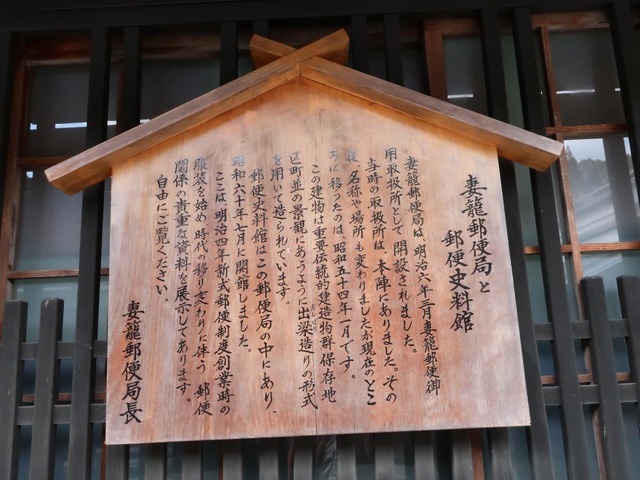 妻籠郵便局と
郵便史料館
妻籠郵便局は、明治六年三月妻籠郵便御
用取扱所として開設されました。その
当時の取扱所は、本陣にありましたが
後、名称や場所も変わりましたが現在のとこ
ろに移ったのは、昭和五十四年一月です。
この建物は重要伝統的建造物群保存地
区町並の景観にあうように出梁造りの形式
を用いて造られています。
郵便史料館はこの郵便局の中にあり、
昭和六十年七月に開館しました。
ここは、明治四年新式郵便制度創業時の
服装を始め、時代の移り変わりに伴う、郵便
関係の貴重な資料を展示してあります。
自由にご覧ください。
妻籠郵便局長